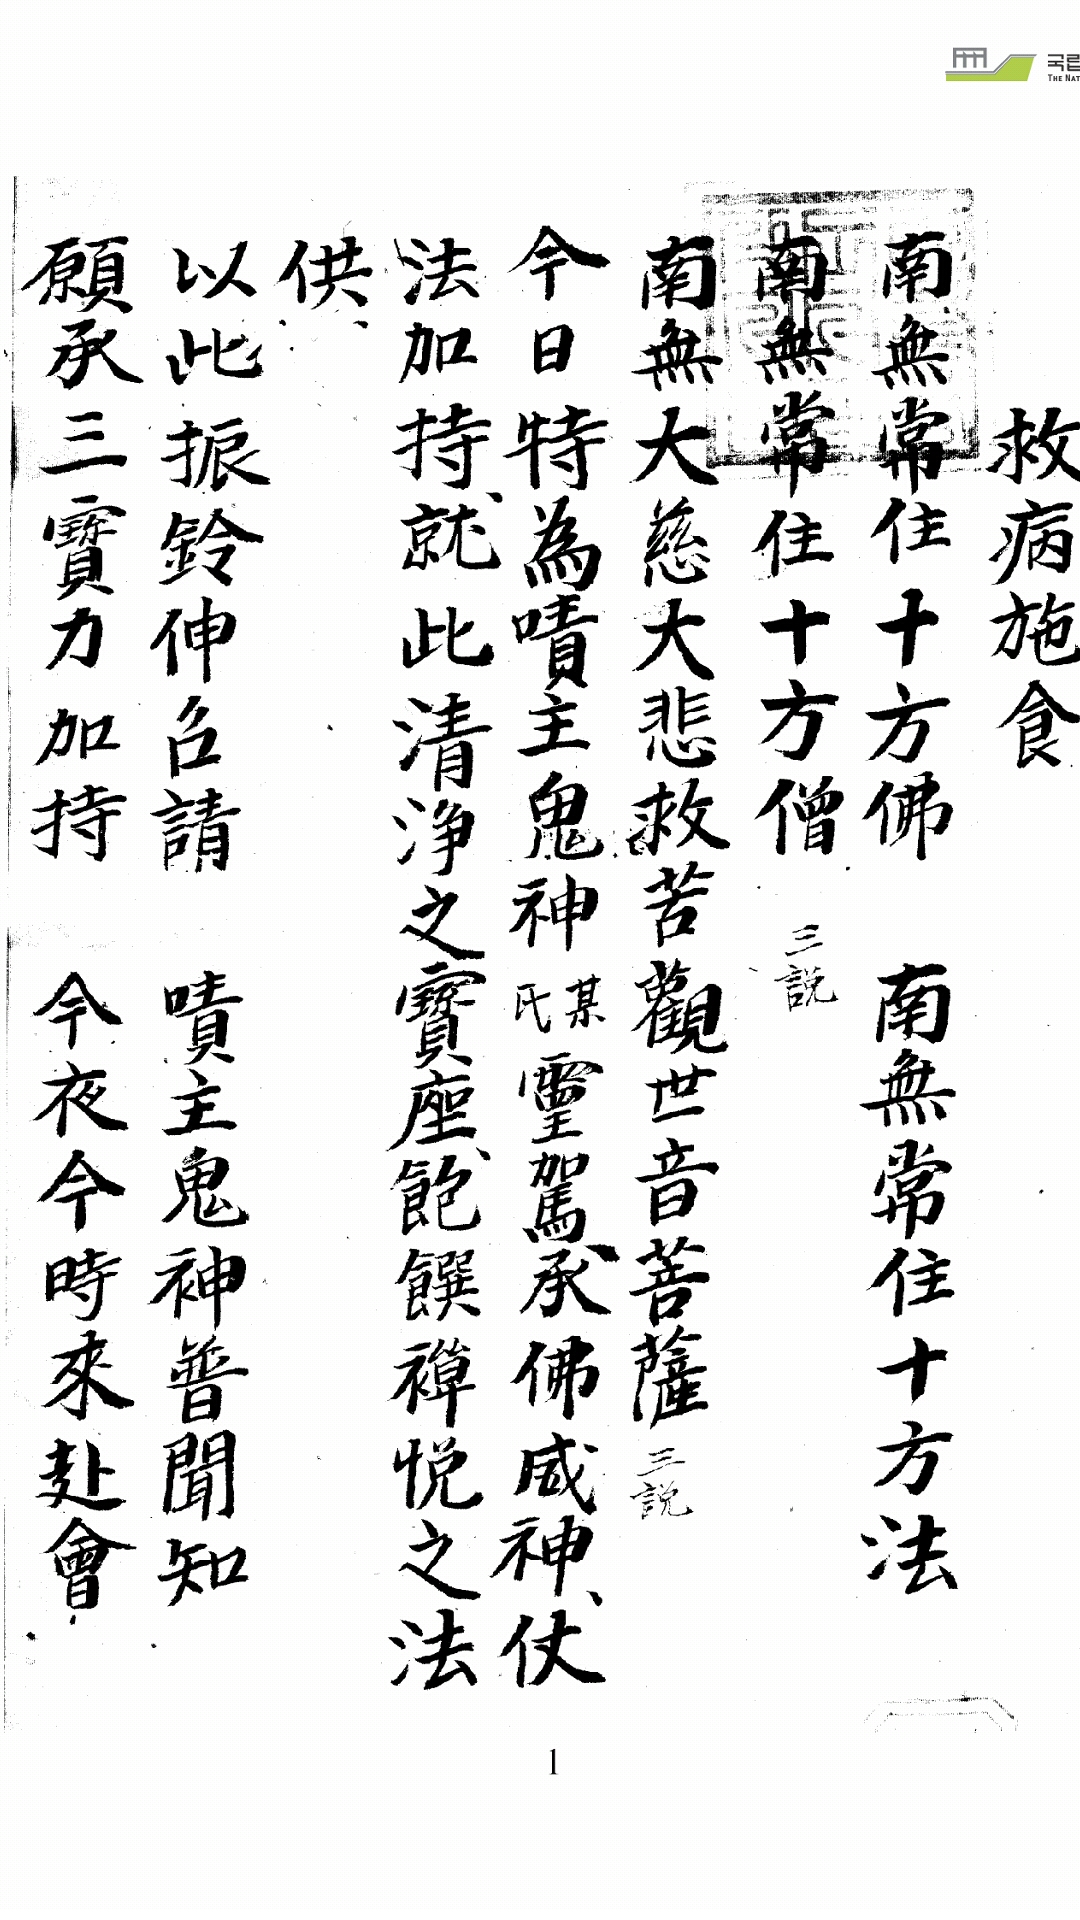 국립
THE NAT
救病施食
南無常住十方佛 南無常住十方法
南無常住十方僧 三說
南無大慈大悲救苦觀世音菩薩 三說
今日特為嘖主鬼神 某氏 靈駕承佛威神、仗
法加持、就此清淨之寶座、飽饌禪悅之法
供
以此振鈴伸召請 嘖主鬼神普聞知
願承三寶力加持 今夜今時來赴會
1